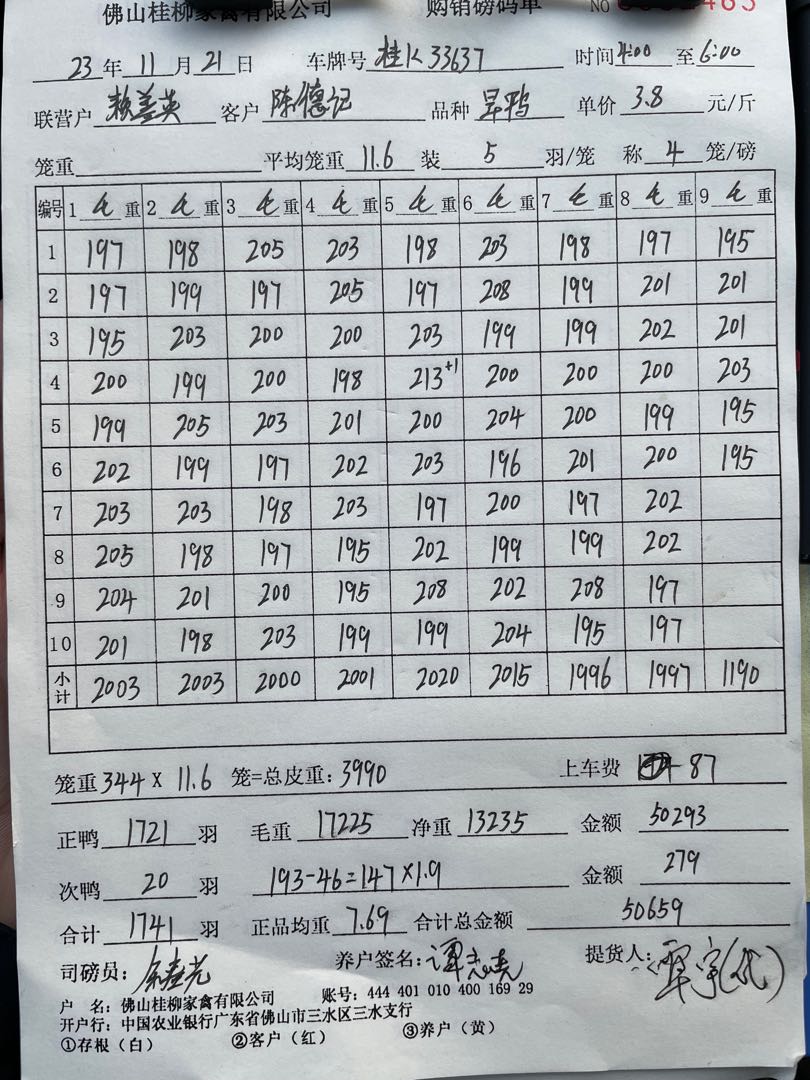 佛山桂柳家禽有限公司 购销磅码单 NO
23 年 11 月 21 日 车牌号 桂K 33637 时间 4:00 至 6:00
联营户 客户 陈德记 品种 单价 3.8 元/斤
笼重 平均笼重 11.6 装 5 羽/笼 称 4 笼/磅
编号 1 毛 重 2 毛 重 3 毛 重 4 毛 重 5 毛 重 6 毛 重 7 毛 重 8 毛 重 9 毛 重
1 197 198 205 203 198 203 198 197 195
2 197 199 197 205 197 208 199 201 201
3 195 203 200 200 203 199 199 202 201
4 200 199 200 198 213+1 200 200 200 203
5 199 205 203 201 200 204 200 199 195
6 202 199 197 202 203 196 201 200 195
7 203 203 198 203 197 200 197 202
8 205 198 197 195 202 199 199 202
9 204 201 200 195 208 202 208 197
10 201 198 203 199 199 204 195 197
小计 2003 2003 2000 2001 2020 2015 1996 1997 1190
笼重 344 X 11.6 笼=总皮重: 3990 上车费 87
正鸭 1721 羽 毛重 17225 净重 13235 金额 50293
次鸭 20 羽 193-46=147×1.9 金额 279
合计 1741 羽 正品均重 7.69 合计总金额 50659
司磅员: 养户签名: 谭志 提货人:
户 名: 佛山桂柳家禽有限公司 账号: 444 401 010 400 169 29
开户行: 中国农业银行广东省佛山市三水区三水支行
①存根（白） ②客户（红） ③养户（黄）